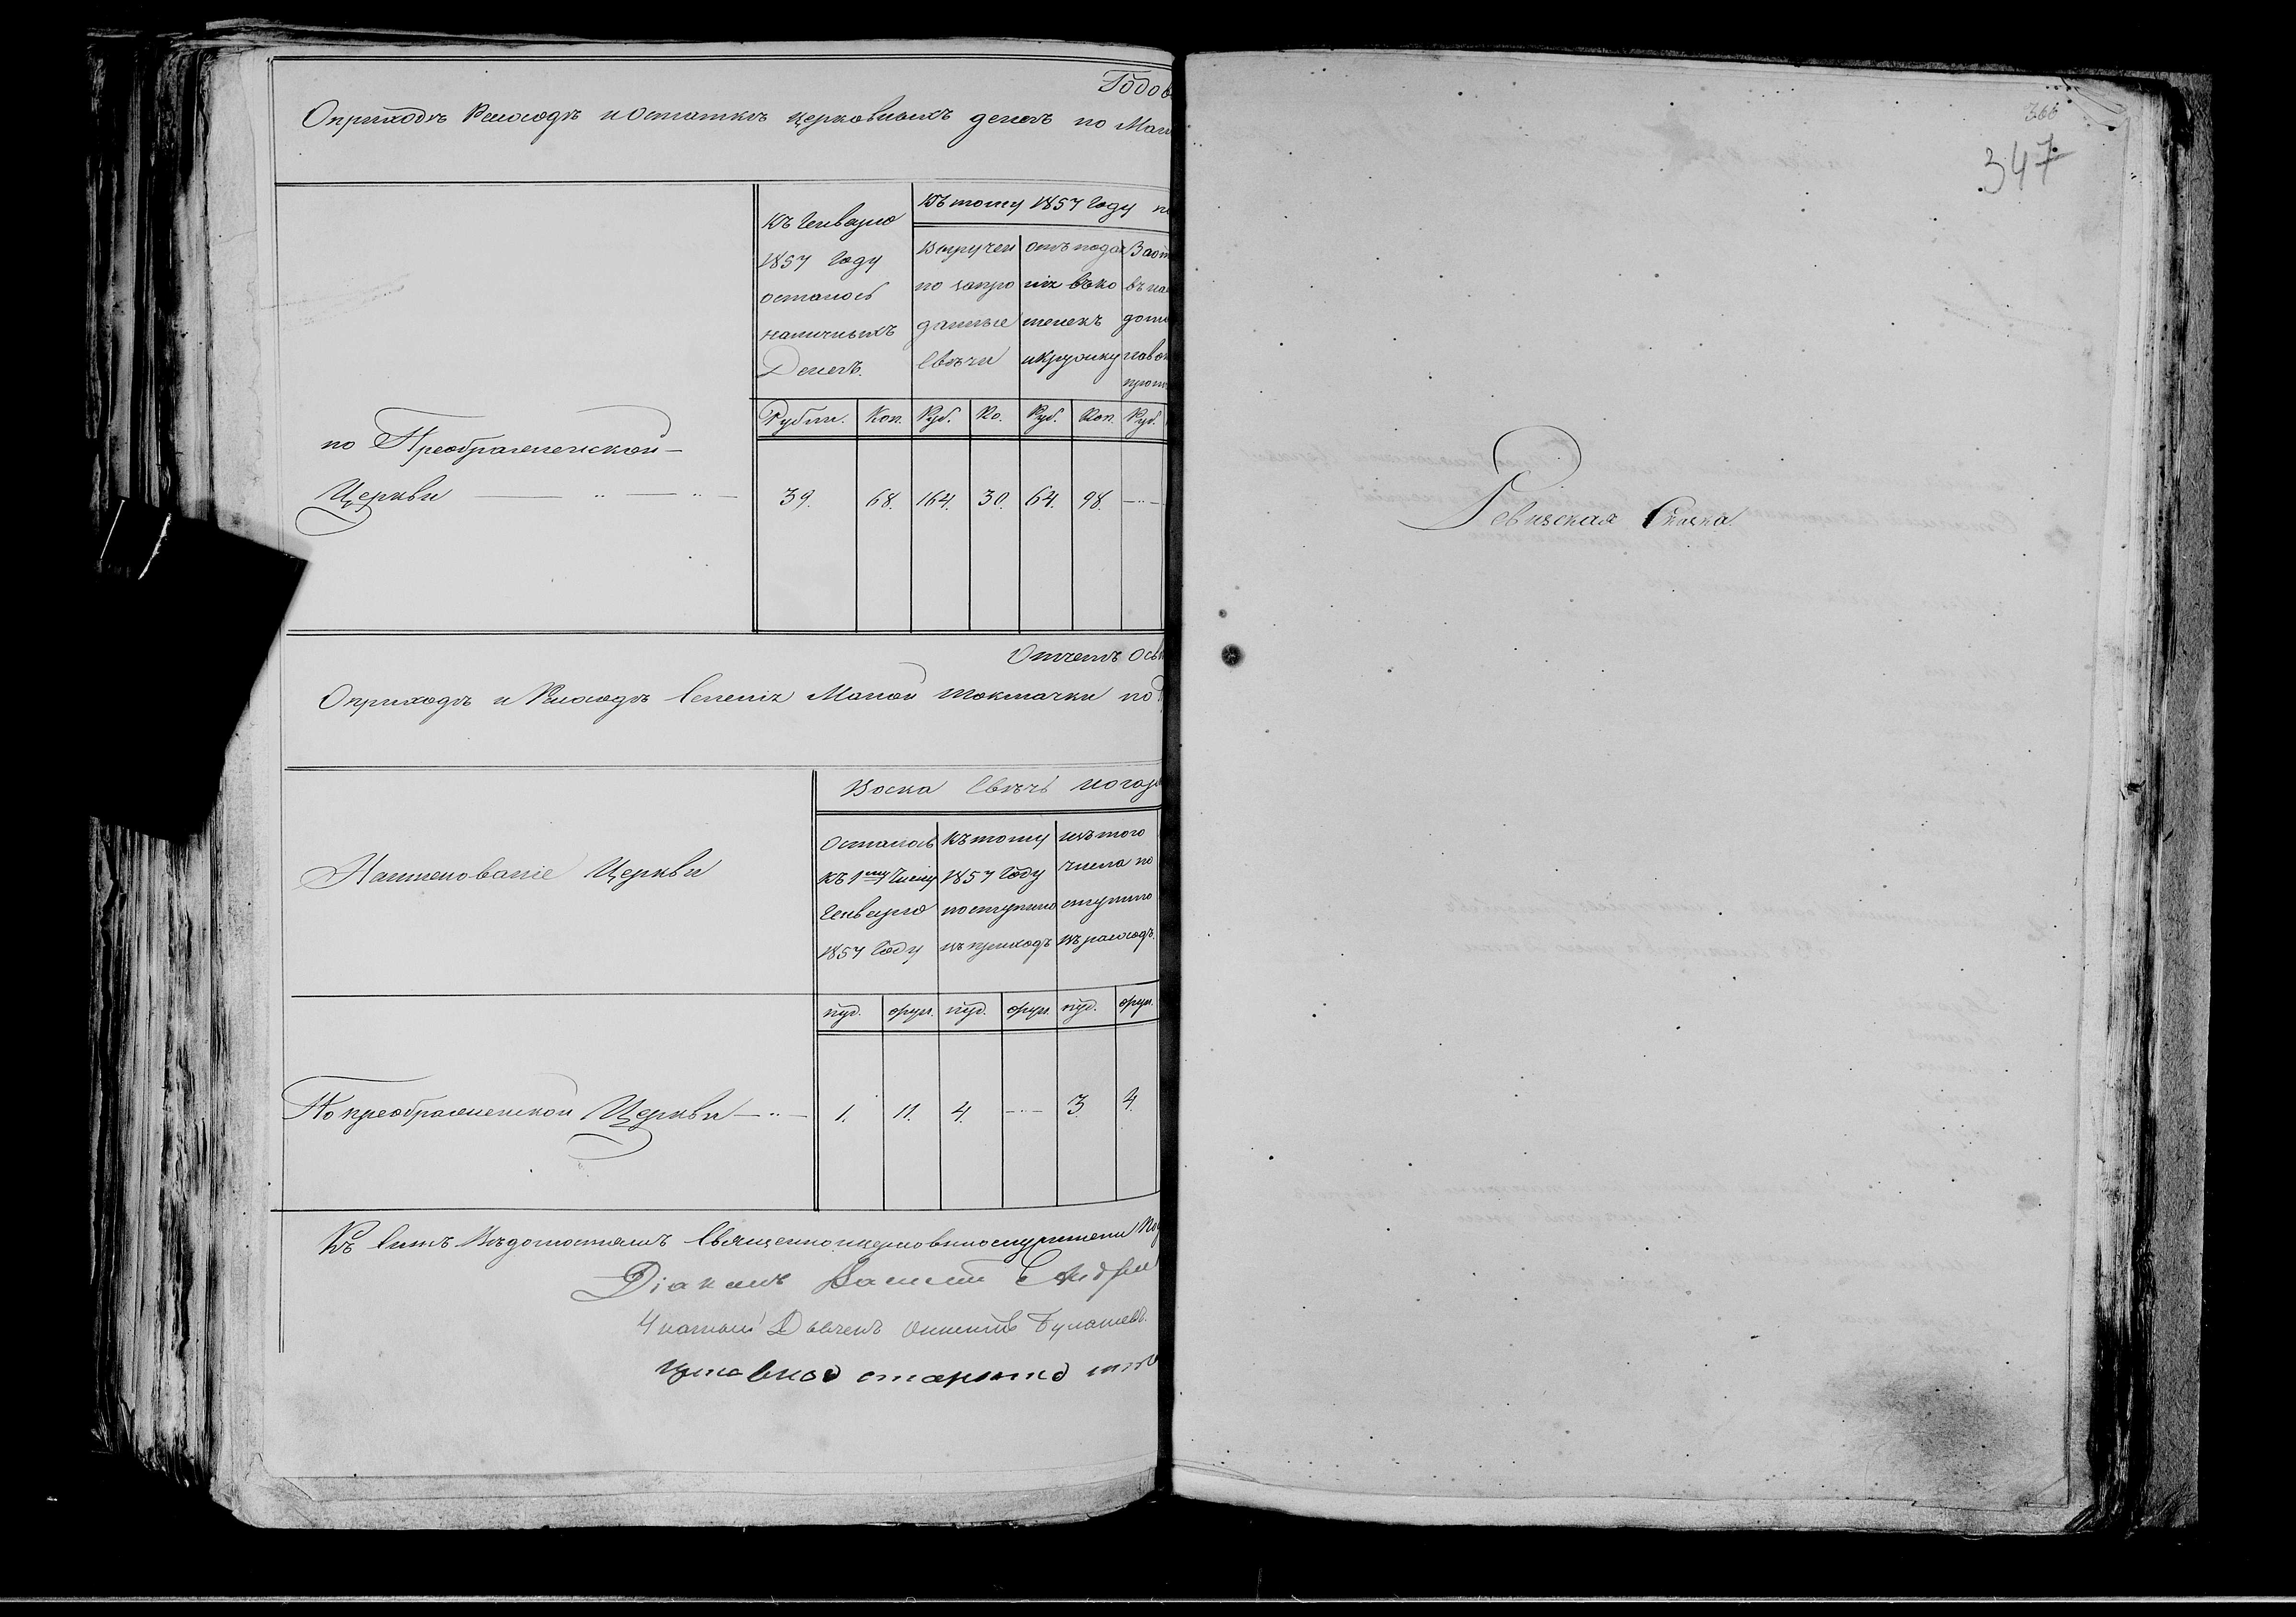 Годов
О приходѣ Расходѣ и Остаткѣ церковныхъ денегъ по Мало
Къ Генварю
1857 Году
осталось
наличныхъ
Денегъ.
Къ тому 1857 Году по
Выручен
по запро
данные
Свѣчи
отъ пода
нія въ ко
шелекъ
и кружку
За от
въ на
дом
лавок
проч
Рубли. Коп. Руб. Ко. Руб. Коп. Руб.
по Преображенской
Церкви 39. 68. 164. 30. 64. 98.
Отчетъ О свѣ
О приходѣ и Расходѣ Селенія Малой Токмачки по
Воска Свѣчь и огар
Наименованіе Церкви
Осталось
Къ 1му Числу
Генваря
1857 Году
Къ тому
1857 Году
поступило
въ приходъ
изъ того
числа по
ступило
въ расходъ.
пуд. фун. пуд. фун. пуд. фун.
По преображенской Церкви 1. 11. 4. 3 4.
Къ Симъ Вѣдомостямъ Священноцерковнослужители
Діаконъ Василий
Дьячекъ
староста
366
347
Ревизская Сказка.